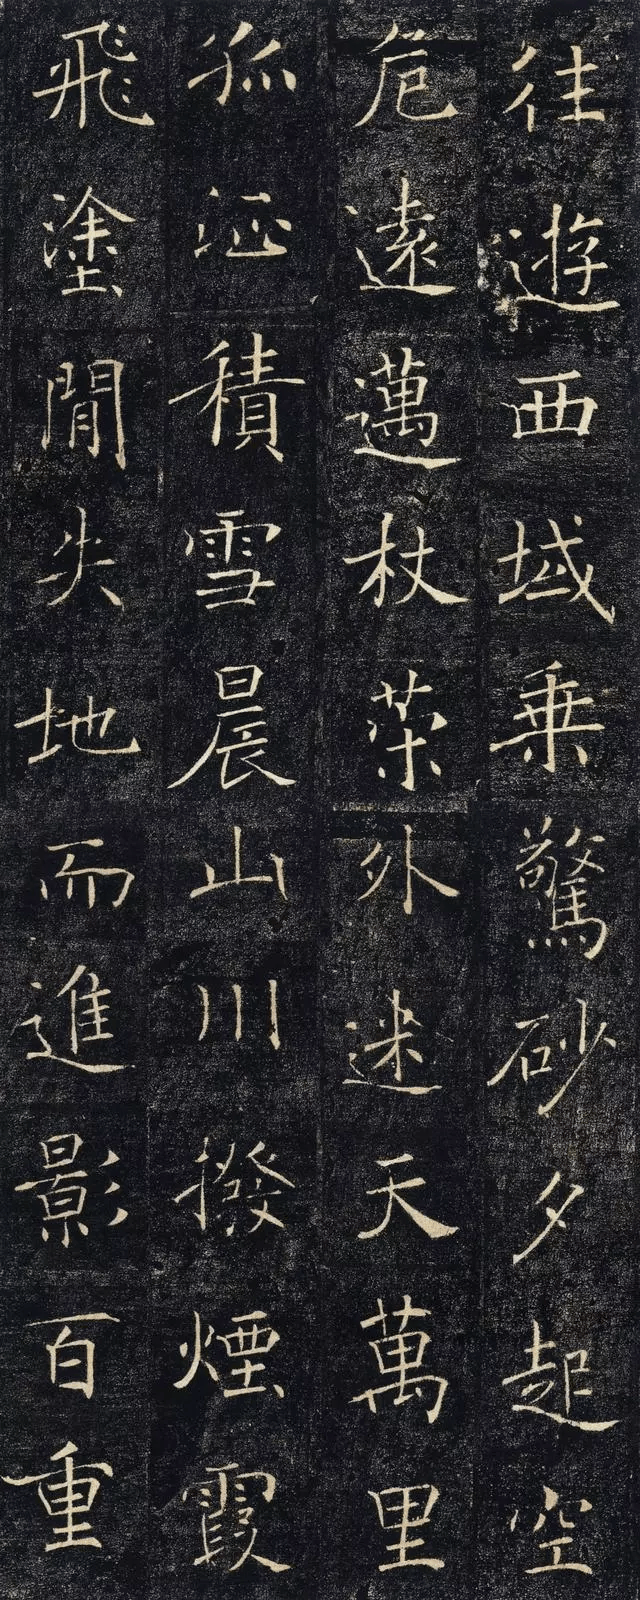 往遊西域乗驚砂夕起空
危遠邁杖茣外迷天萬里
孤征積雪晨山川撥煙霞
飛塗閒失地而進影百重